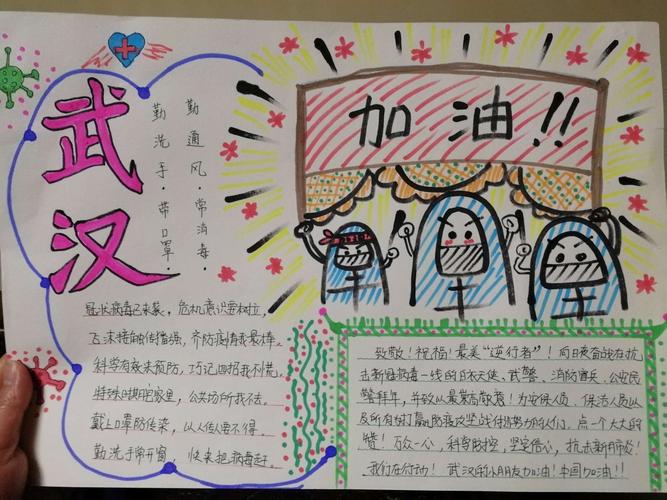 武汉
勤通风·常消毒
勤洗手·带口罩·
加油!!
冠状病毒已来袭，危机意识要树立，
飞沫接触传播强，齐防疫情我最棒。
科学有效来预防，巧记四招我不慌，
特殊时期呆家里，公共场所我不去。
戴上口罩防传染，以人传人要不得。
勤洗手常开窗，快来把病毒赶。
致敬！祝福！最美“逆行者”！向日夜奋战在抗
击新冠病毒一线的白衣天使、武警、消防官兵、公安民
警拜年，并致以最崇高敬意！为安保人员、保洁人员以
及所有为打赢防疫攻坚战付出努力的人们，点一个大大的
赞！万众一心，科学防控，坚定信心，抗击新
我们在行动！武汉的小朋友加油！中国加油!!